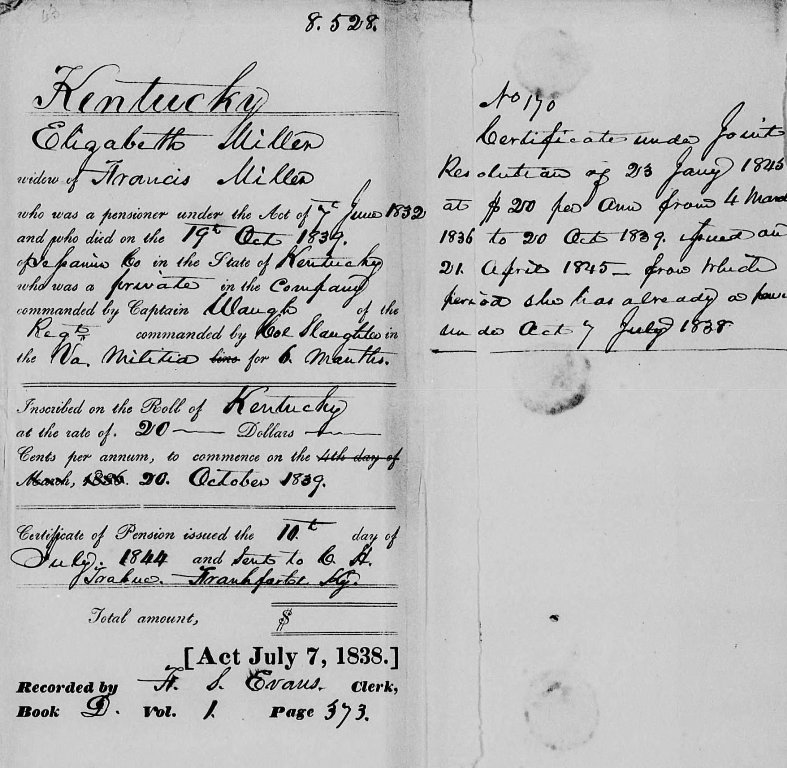 8.528.
Kentucky
Elizabeth Miller
widow of Francis Miller
who was a pensioner under the Act of 7th June 1832
and who died on the 19th Oct 1839.
of Co in the State of Kentucky
who was a private in the Company
commanded by Captain Waugh of the
Regt commanded by Col Slaughter in
the Va. Militia line for 6 Months.
Inscribed on the Roll of Kentucky
at the rate of. 20 Dollars
Cents per annum, to commence on the 4th day of
March, 1836. 20. October 1839.
Certificate of Pension issued the 10th day of
July. 1844 and Sent to C. H.
Frankfort Ky.
Total amount, $
[Act July 7, 1838.]
Recorded by A. S. Evans. Clerk,
Book D. Vol. 1. Page 373.
No 170
Certificate under Joint
Resolution of 23 Jany 1845
at $20 per Ann from 4 March
1836 to 20 Oct 1839. issued on
21. April 1845 – from which
period she has already a
under Act 7 July 1838